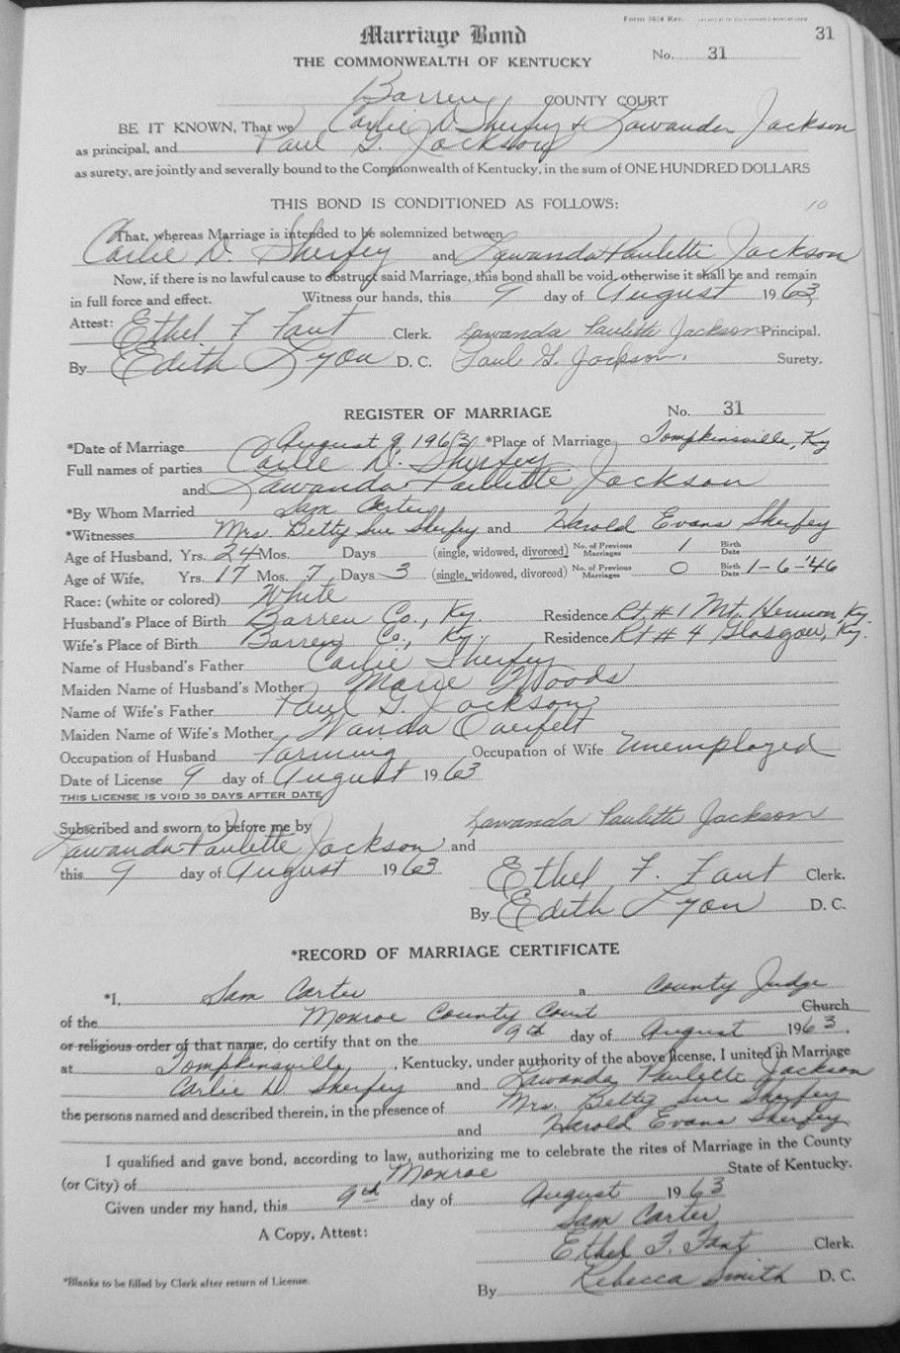 Form 103A Rev.
31
Marriage Bond
No. 31
THE COMMONWEALTH OF KENTUCKY
Barren COUNTY COURT
BE IT KNOWN, That we Carlie D. Sherfey & Lawanda Jackson
as principal, and Paul G. Jackson
as surety, are jointly and severally bound to the Commonwealth of Kentucky, in the sum of ONE HUNDRED DOLLARS
THIS BOND IS CONDITIONED AS FOLLOWS:
10
That, whereas Marriage is intended to be solemnized between
Carlie D. Sherfey and Lawanda Paulette Jackson
Now, if there is no lawful cause to obstruct said Marriage, this bond shall be void, otherwise it shall be and remain
in full force and effect. Witness our hands, this 9 day of August 1963
Attest: Ethel F Fant Clerk. Lawanda Paulette Jackson Principal.
By Edith Lyon D. C. Paul G. Jackson. Surety.
REGISTER OF MARRIAGE No. 31
*Date of Marriage August 9 1963 *Place of Marriage Tompkinsville, Ky
Full names of parties Carlie D. Sherfey
and Lawanda Paulette Jackson
*By Whom Married Sam Carter
*Witnesses Mrs. Betty Sue Sherfey and Harold Evans Sherfey
Age of Husband, Yrs. 24 Mos. Days (single, widowed, divorced) No. of Previous Marriages 1 Birth Date
Age of Wife, Yrs. 17 Mos. 7 Days 3 (single, widowed, divorced) No. of Previous Marriages 0 Birth Date 1-6-'46
Race: (white or colored) White
Husband's Place of Birth Barren Co., Ky. Residence Rt #1 Mt. Hermon, Ky.
Wife's Place of Birth Barren Co., Ky. Residence Rt # 4 Glasgow, Ky.
Name of Husband's Father Carlie Sherfey
Maiden Name of Husband's Mother Marie Woods
Name of Wife's Father Paul G. Jackson
Maiden Name of Wife's Mother Wanda
Occupation of Husband Farming Occupation of Wife Unemployed
Date of License 9 day of August 1963
THIS LICENSE IS VOID 30 DAYS AFTER DATE
Subscribed and sworn to before me by Lawanda Paulette Jackson
Lawanda Paulette Jackson and
this 9 day of August 1963 Ethel F. Fant Clerk.
By Edith Lyon D. C.
*RECORD OF MARRIAGE CERTIFICATE
*I, Sam Carter a County Judge
of the Monroe County Court Church
or religious order of that name, do certify that on the 9th day of August 1963.
at Tompkinsville, Kentucky, under authority of the above license, I united in Marriage
Carlie D. Sherfey and Lawanda Paulette Jackson
the persons named and described therein, in the presence of Mrs. Betty Sue Sherfey
and Harold Evans Sherfey
I qualified and gave bond, according to law, authorizing me to celebrate the rites of Marriage in the County
(or City) of Monroe State of Kentucky.
Given under my hand, this 9th day of August 1963
Sam Carter
A Copy, Attest: Ethel F. Fant Clerk.
*Blanks to be filled by Clerk after return of License.
By Rebecca Smith D. C.